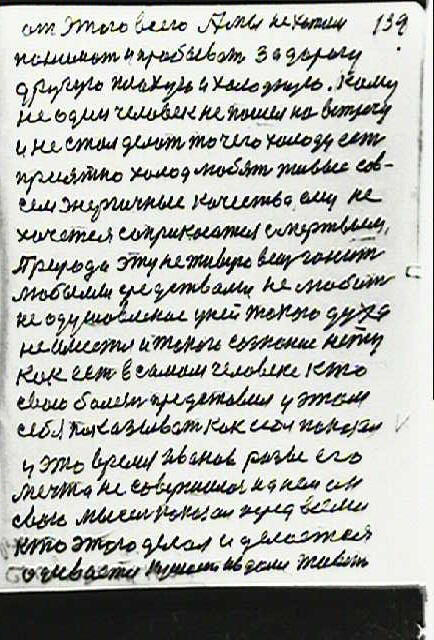 от этого всего Люди не хотели 139
понимать и пробивать за дорогу
другую плохую и холодную. Кому
не один человек не пошел на встречу
и не стал делать то чего холоду есть
приятно холод любят живые сов-
сем энергичные качества, ему не
хочется соприкосаться с мертвым,
Природа эту не живую вещ гонит
любыми средствами не любит
не одушевленое у ней такого духа
не имеется и такого сознание нету
как есть в самом человеке кто
свою болезн представил у этом
себя показывать как себя показал
у это время Иванов разве его
мечта не совершилас на нем он
свою мысел показал перед всеми
кто этого делал и делается
одевается кушает и в доме живет